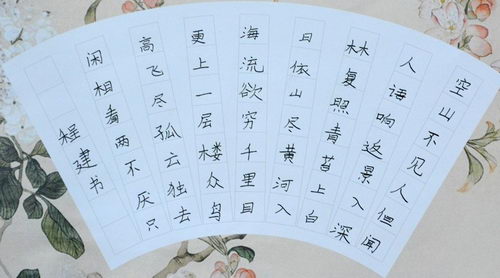 空山不见人但闻
人语响返景入深
林复照青苔上白
日依山尽黄河入
海流欲穷千里目
更上一层楼众鸟
高飞尽孤云独去
闲相看两不厌只
程建书